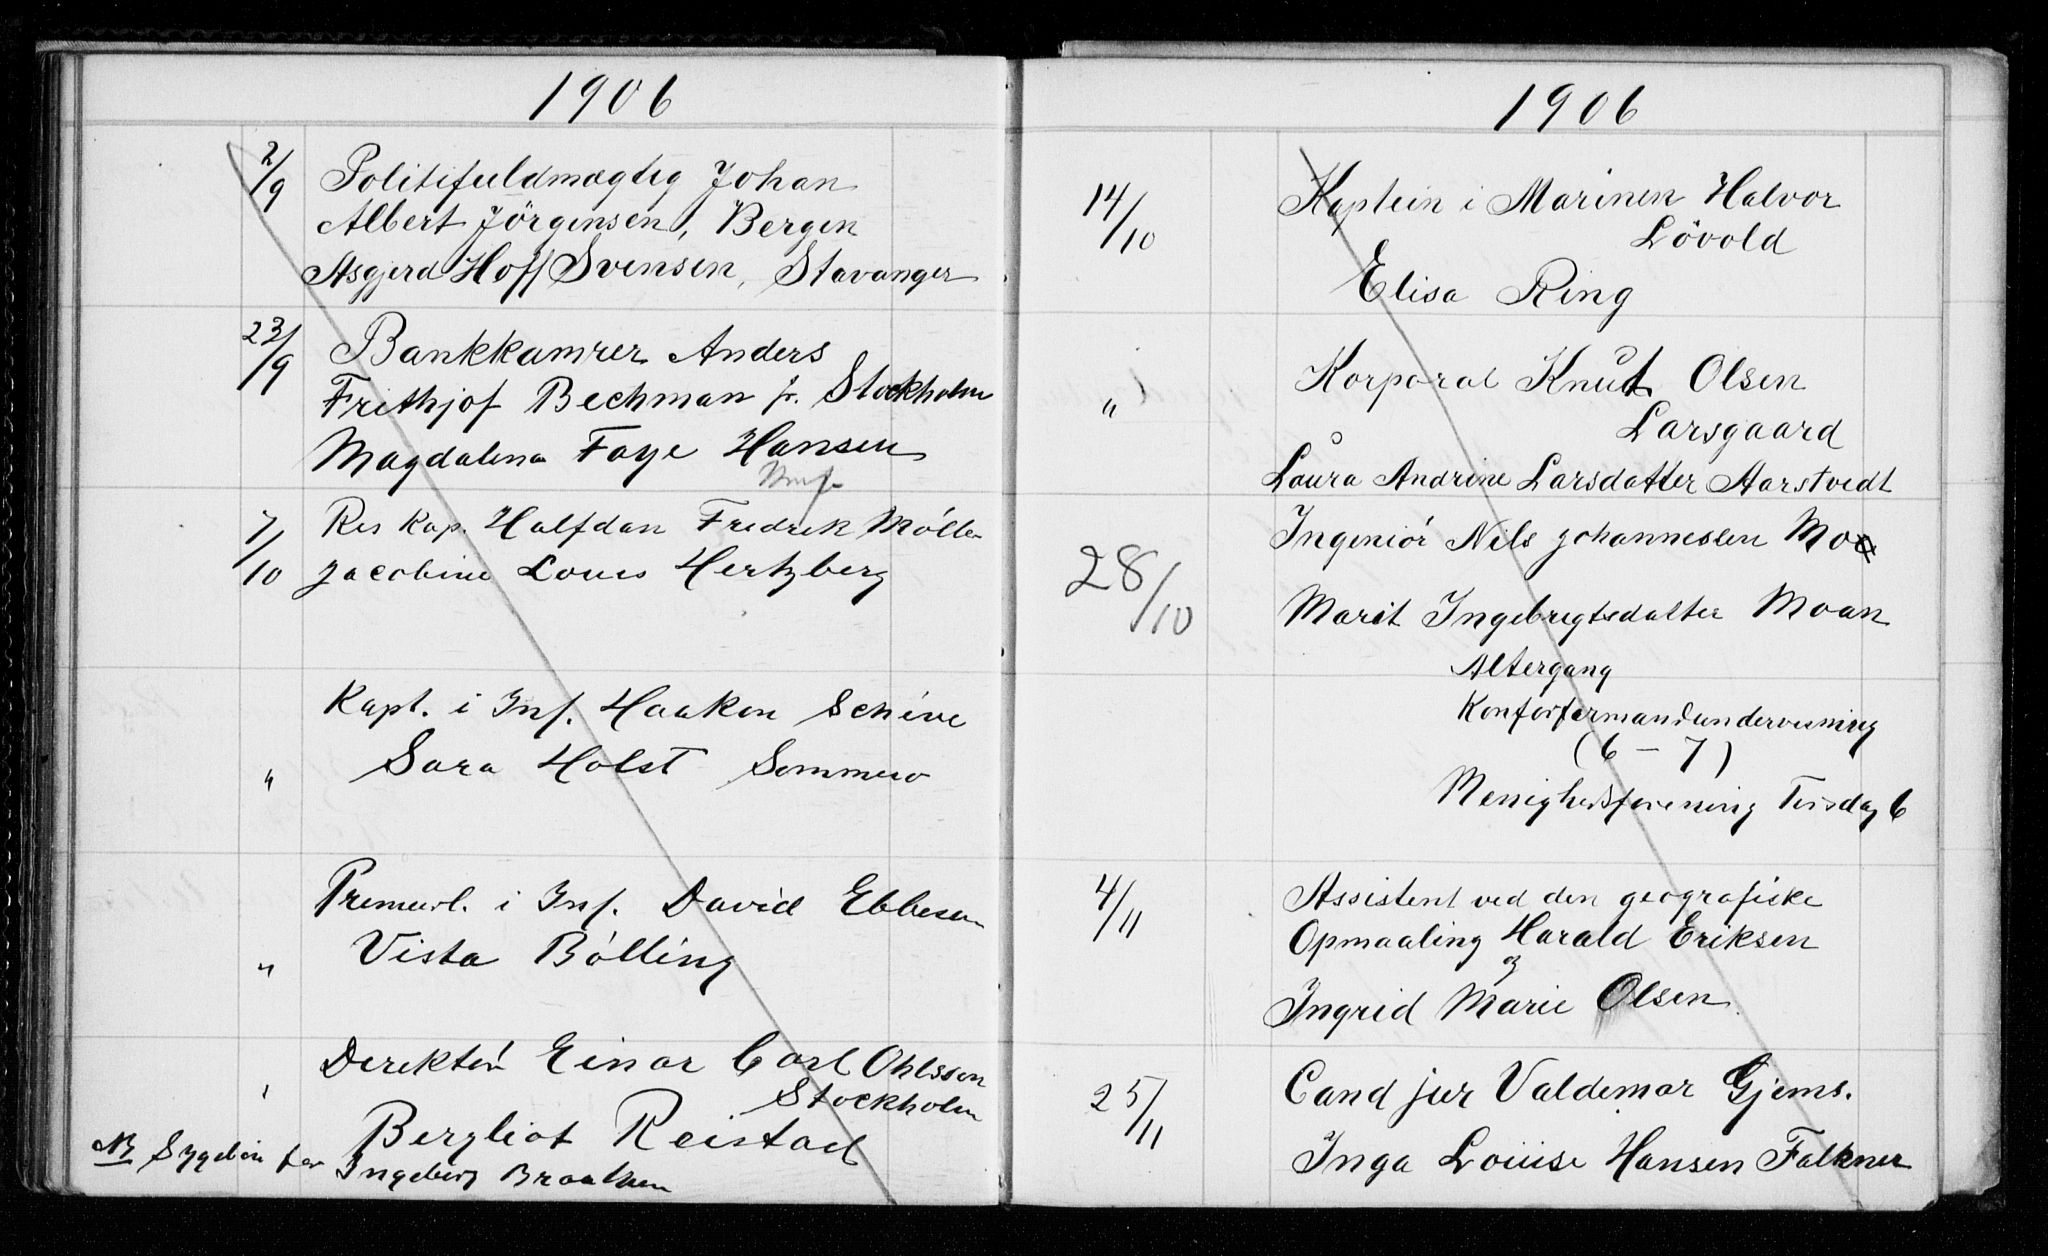 1906
2/9 Politifuldmægtig Johan
Albert Jörgensen, Bergen
Asgjerd Hoff Svensen, Stavanger
23/9 Bankkamrer Anders
Frithjof Bechman fr. Stockholm
Magdalena Faye Hansen
7/10 Res Kap. Halfdan Fredrik Möller
Jacobine Louis Hertzberg
Kapt. i Inf. Haakon Schive
" Sara Holst Sommero
Premierl. i Inf. David Ebbesen
" Vista Bölling
Direktör Einar Carl Ohlsson
Stockholm
Bergliot Reistad
NB Sygebön for Ingeborg Braathen
1906
14/10 Kaptein i Marinen Halvor
Lövold
Elisa Ring
" Korporal Knut Olsen
Larsgaard
Laura Andrine Larsdatter Aarstvedt
28/10 Ingeniör Nils Johannessen Moe
Marit Ingebrigtsdatter Moan
Altergang
Konforfermandundervisning
(6 – 7)
Menighedsforening Tirsdag 6
4/11 Assistent ved den geografiske
Opmaaling Harald Eriksen
og
Ingrid Marie Olsen
25/11 Cand jur Valdemar Gjems.
Inga Louise Hansen Falkner